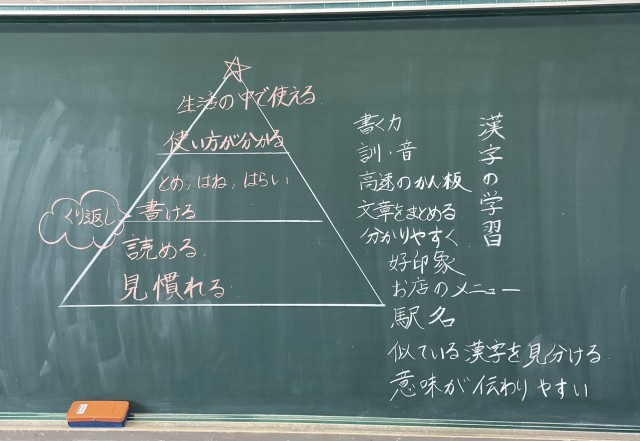 漢字の学習
書く力
訓・音
高速のかん板
文章をまとめる
分かりやすく
好印象
お店のメニュー
駅名
似ている漢字を見分ける
意味が伝わりやすい
生活の中で使える
使い方が分かる
とめ,はね,はらい
書ける
くり返し
読める
見慣れる